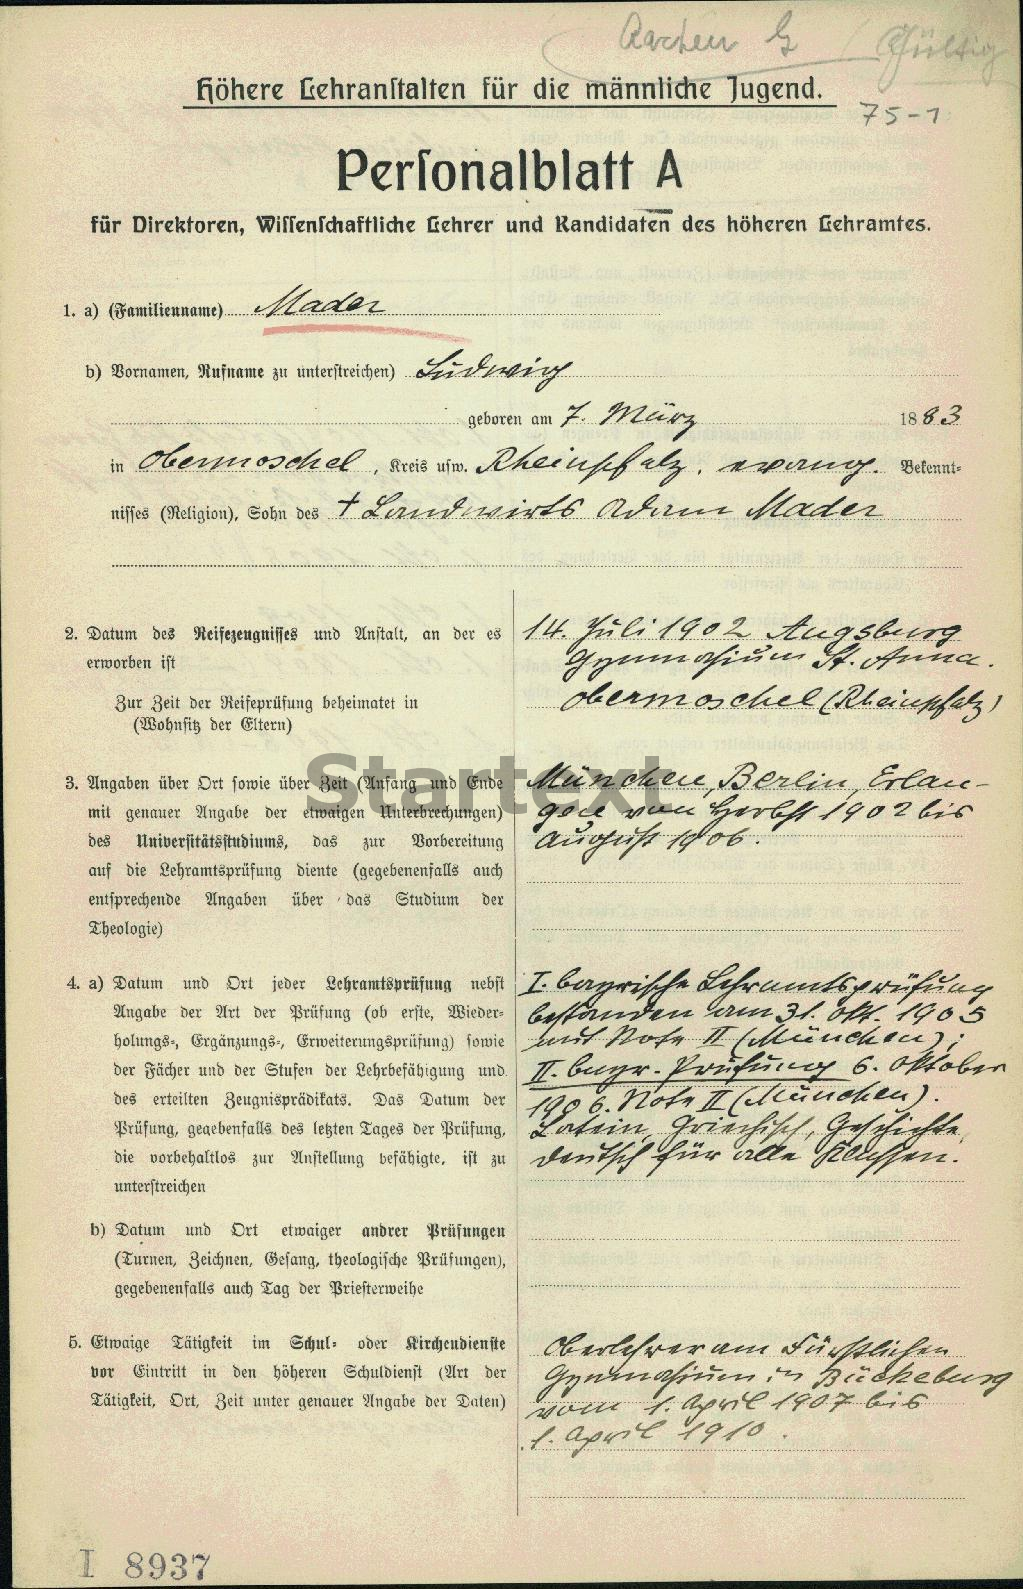 Aachen G / Gültig
Höhere Lehranstalten für die männliche Jugend.
75-1
Personalblatt A
für Direktoren, Wissenschaftliche Lehrer und Kandidaten des höheren Lehramtes.
1. a) (Familienname) Mader
b) Vornamen, Rufname zu unterstreichen) Ludwig
geboren am 7. März 1883
in Obermoschel, Kreis usw. Rheinpfalz, evang. Bekennt-
nisses (Religion), Sohn des † Landwirts Adam Mader
2. Datum des Reifezeugnisses und Anstalt, an der es
erworben ist
Zur Zeit der Reifeprüfung beheimatet in
(Wohnsitz der Eltern)
14. Juli 1902 Augsburg
Gymnasium St. Anna.
Obermoschel (Rheinpfalz)
Startext
3. Angaben über Ort sowie über Zeit (Anfang und Ende
mit genauer Angabe der etwaigen Unterbrechungen)
des Universitätsstudiums, das zur Vorbereitung
auf die Lehramtsprüfung diente (gegebenenfalls auch
entsprechende Angaben über das Studium der
Theologie)
München, Berlin, Erlan-
gen von Herbst 1902 bis
August 1906.
4. a) Datum und Ort jeder Lehramtsprüfung nebst
Angabe der Art der Prüfung (ob erste, Wieder-
holungs-, Ergänzungs-, Erweiterungsprüfung) sowie
der Fächer und der Stufen der Lehrbefähigung und
des erteilten Zeugnisprädikats. Das Datum der
Prüfung, gegebenfalls des letzten Tages der Prüfung,
die vorbehaltlos zur Anstellung befähigte, ist zu
unterstreichen
I. bayrische Lehramtsprüfung
bestanden am 31. Okt. 1905
mit Note II (München);
II. bayr. Prüfung 6. Oktober
1906. Note II (München).
Latein, Griechisch, Geschichte,
Deutsch für alle Klassen.
b) Datum und Ort etwaiger andrer Prüfungen
(Turnen, Zeichnen, Gesang, theologische Prüfungen),
gegebenenfalls auch Tag der Priesterweihe
5. Etwaige Tätigkeit im Schul- oder Kirchendienste
vor Eintritt in den höheren Schuldienst (Art der
Tätigkeit, Ort, Zeit unter genauer Angabe der Daten)
Oberlehrer am Fürstlichen
Gymnasium in Bückeburg
vom 1. April 1907 bis
1. April 1910.
I 8937